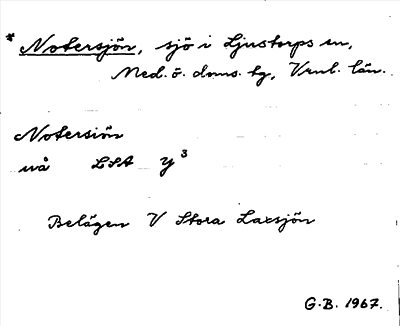 * Notersjön, sjö i Ljustorps sn,
Med. ö. doms. tg, Vrnl. län.
Notersiön
uå LSA Y 3
Belägen V Stora Laxsjön
G.B. 1967.